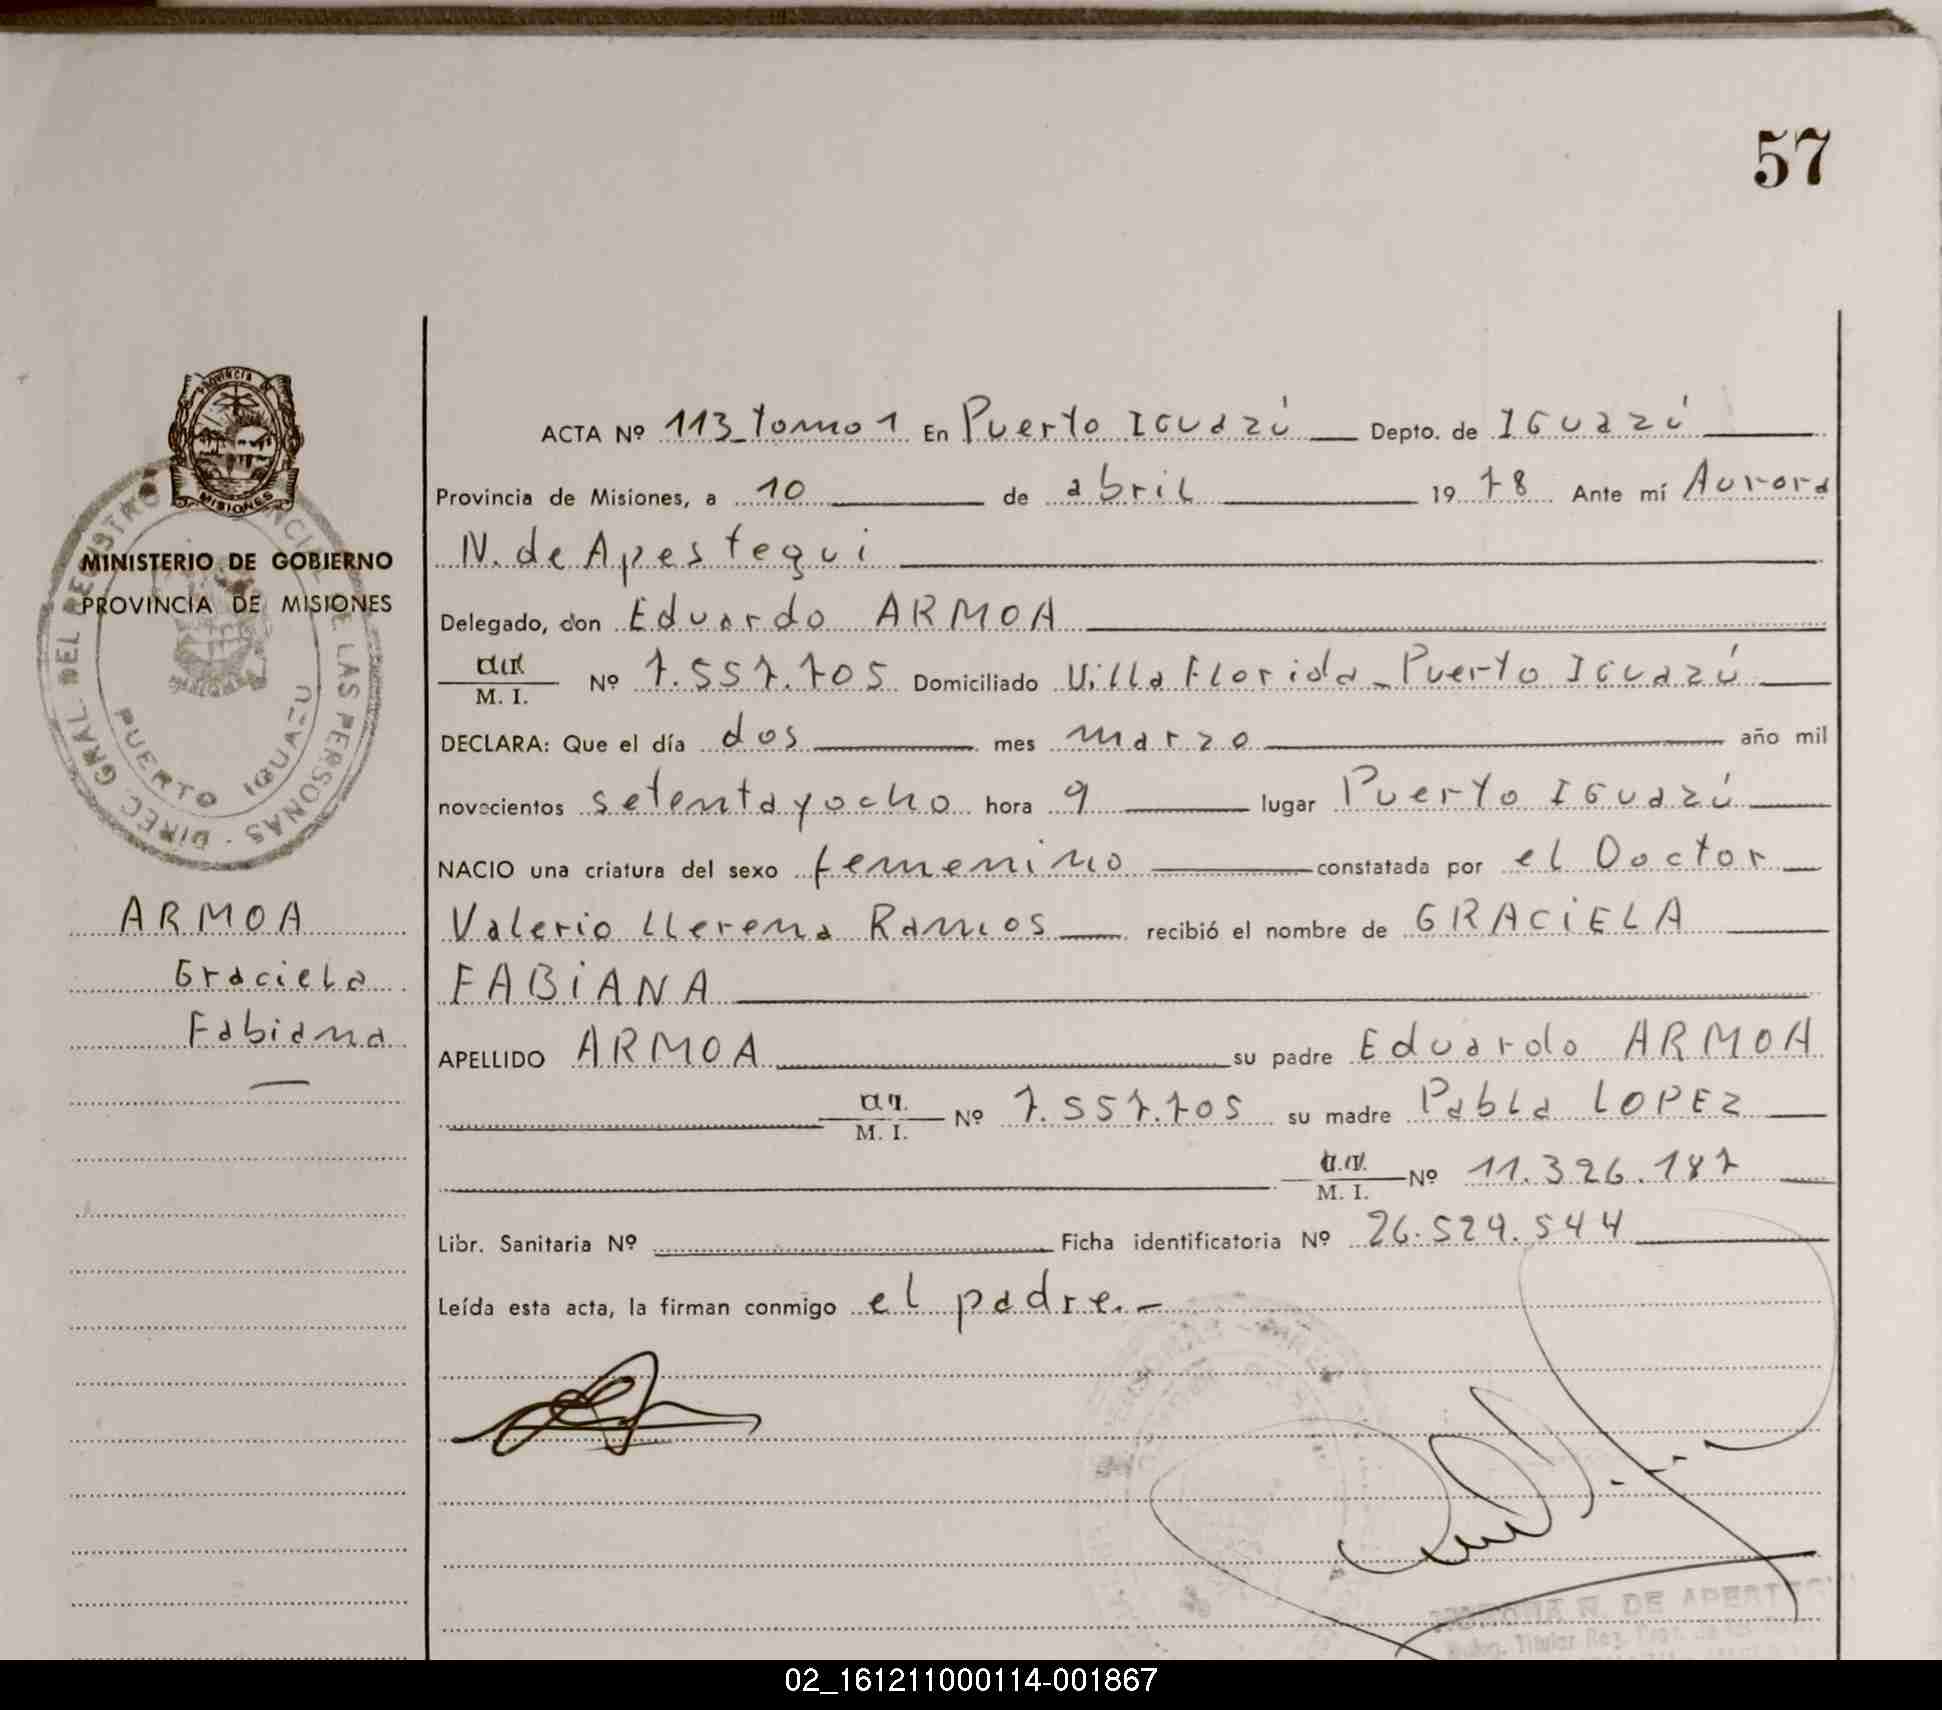 57
Provincia de
MISIONES
ACTA Nº 113 tomo 1 En Puerto IGuazú Depto. de IGuazú
Provincia de Misiones, a 10 de abril 1978 Ante mí Aurora
N. de Apestegui
MINISTERIO DE GOBIERNO
PROVINCIA DE MISIONES
DIREC. GRAL. DEL REGISTRO PROVINCIAL DE LAS PERSONAS
PUERTO IGUAZU
Delegado, don Eduardo ARMOA
M. I. Nº 7.557.705 Domiciliado Villa Florida - Puerto IGuazú
DECLARA: Que el día dos mes marzo año mil
novecientos setenta y ocho hora 9 lugar Puerto IGuazú
NACIO una criatura del sexo femenino constatada por el Doctor
Valerio Llerena Ramos recibió el nombre de GRACIELA
FABIANA
ARMOA
Graciela
Fabiana
APELLIDO ARMOA su padre Eduardo ARMOA
M. I. Nº 7.557.705 su madre Pabla LOPEZ
M. I. Nº 11.326.187
Libr. Sanitaria Nº Ficha identificatoria Nº 26.529.544
Leída esta acta, la firman conmigo el padre.-
N. DE APESTEGUI
Titular Reg.
02_161211000114-001867